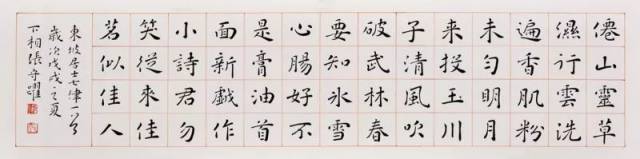 僊山靈草
濕行雲洗
遍香肌粉
未勻明月
來投玉川
子清風吹
破武林春
要知冰雪
心腸好不
是膏油首
面新戲作
小詩君勿
笑從來佳
茗似佳人
東坡居士七律一首
歲次戊戌之夏
下相張守躍